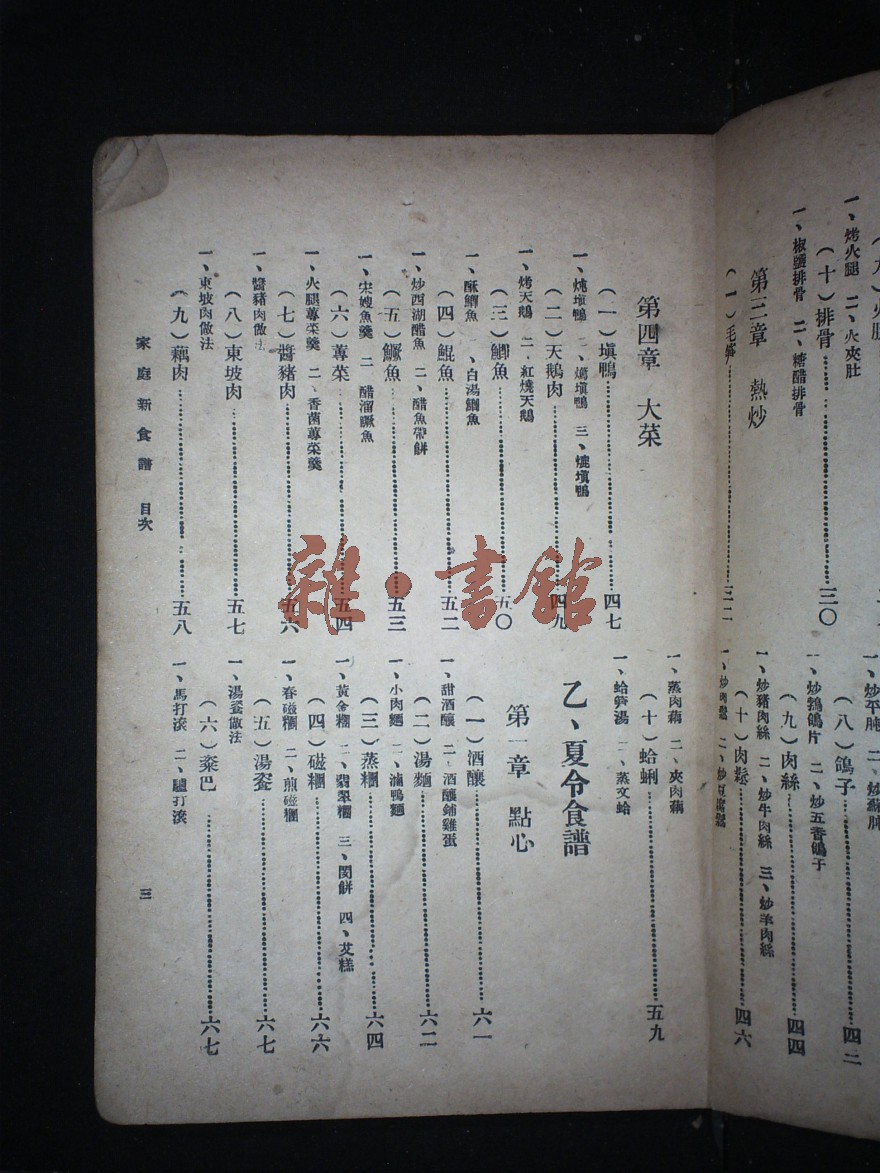 一、烤火腿 二、火夾肚
(十)排骨……三〇
一、椒鹽排骨 二、糖醋排骨
第三章 熱炒
(八)鴿子……四二
一、炒鵓鴿片 二、炒五香鴿子
(九)肉絲……四四
一、炒豬肉絲 二、炒牛肉絲 三、炒羊肉絲
(十)肉鬆……四六
第四章 大菜
(一)塡鴨……四七
(二)天鵝肉……四九
一、烤天鵝 二、紅燒天鵝
(三)鯽魚……五〇
一、酥鯽魚 、白湯鯽魚
(四)鯤魚……五二
一、炒西湖醋魚 二、醋魚帶餅
(五)鱖魚……五三
一、宋嫂魚羹 二 醋溜鱖魚
(六)蓴菜……五四
一、火腿蓴菜羹 二、香菌蓴菜羹
(七)醬豬肉……五六
一、醬豬肉做法
(八)東坡肉……五七
一、東坡肉做法
(九)藕肉……五八
一、蒸肉藕 二、夾肉藕
(十)蛤蜊……五九
一、蛤笋湯 二、蒸文蛤
乙、夏令食譜
第一章 點心
(一)酒釀……六一
一、甜酒釀 二、酒釀鋪雞蛋
(二)湯麵……六二
一、小肉麵 二、滷鴨麵
(三)蒸糰……六四
一、黃金糰 二、翡翠糰 三、閔餅 四、艾糕
(四)磁糰……六六
一、春磁糰 二、煎磁糰
(五)湯䬦……六七
一、湯䬦做法
(六)粢巴……六七
一、馬打滾 二、驢打滾
家庭新食譜 目次
三
雜·書館